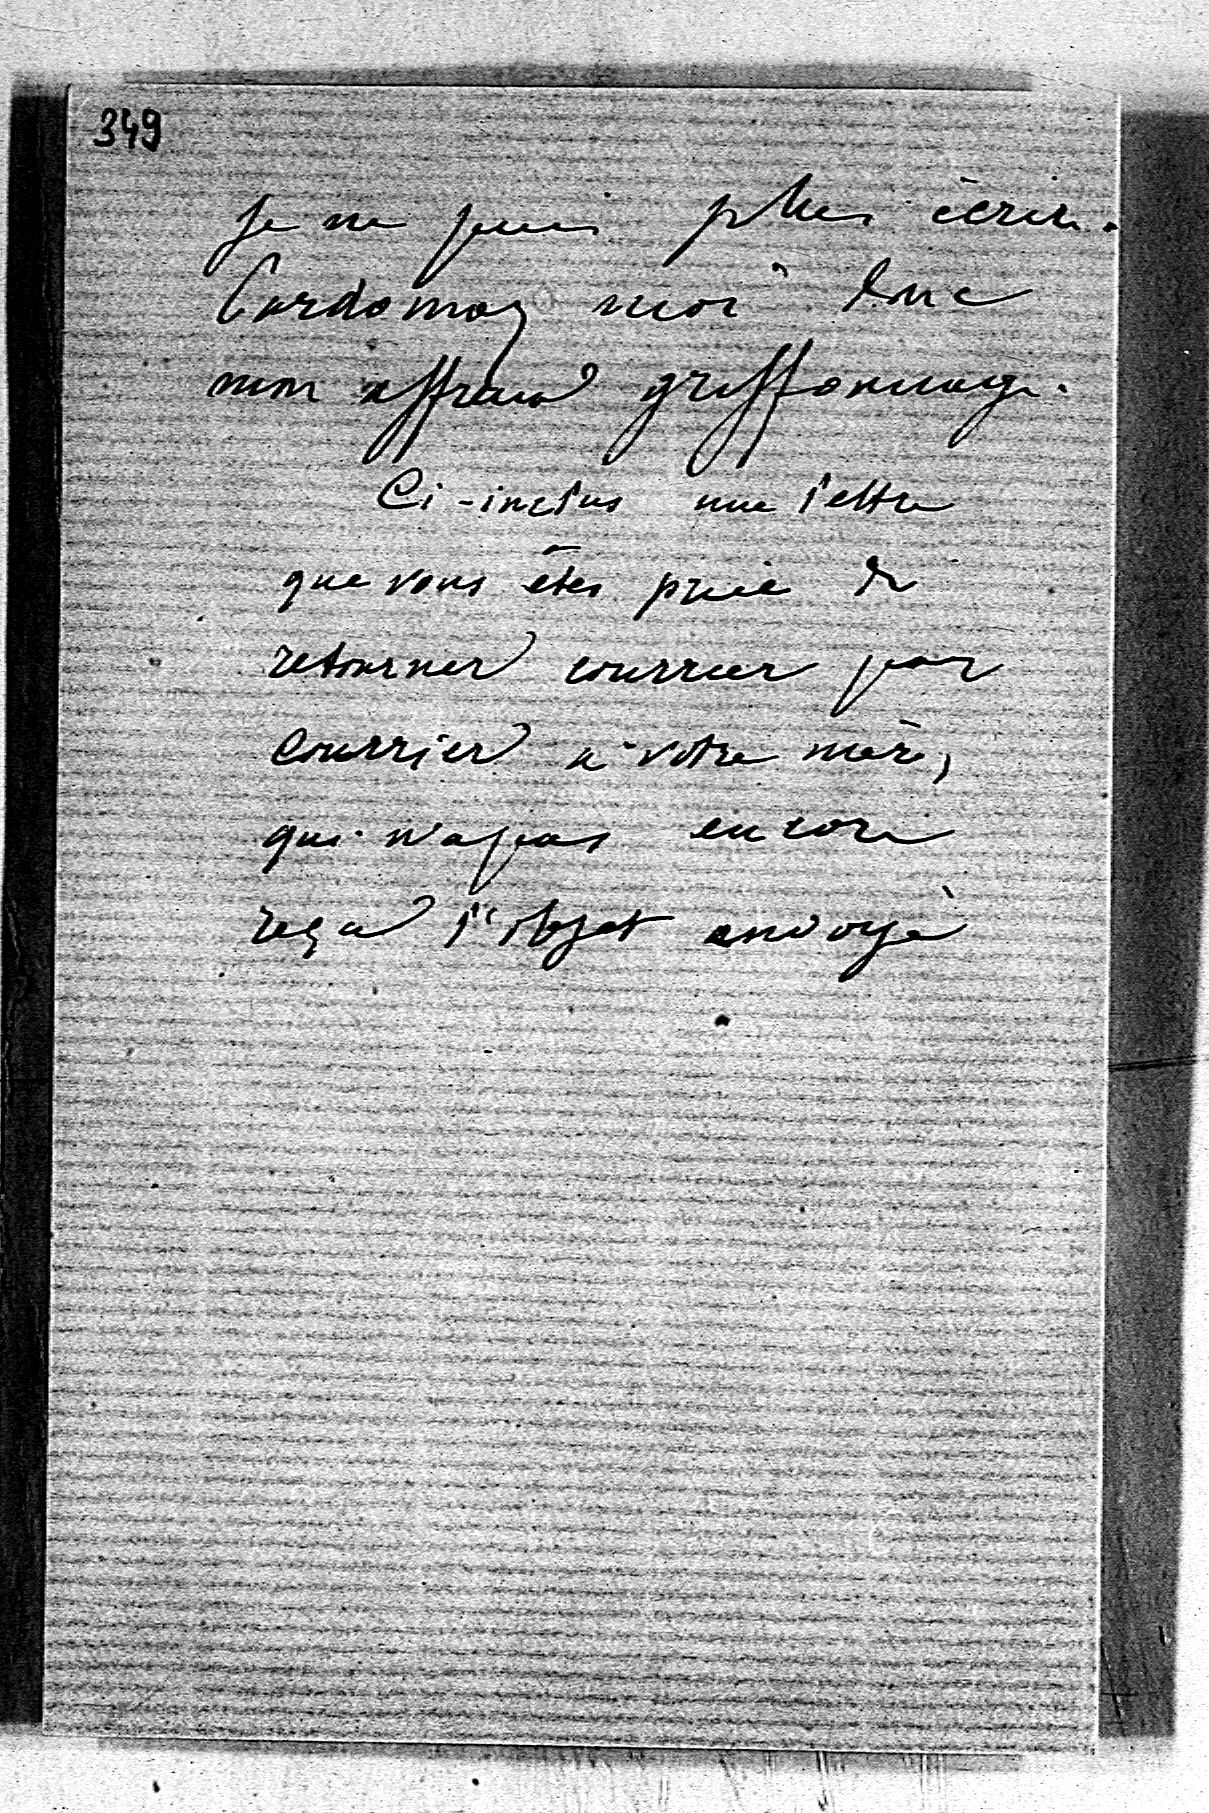 349
je ne puis plus écrire.
Pardonnez moi donc
mon affreux griffonnage.
Ci-inclus une lettre
que vous êtes prié de
retourner courrier par
courrier à votre mère,
qui n'a pas encore
reçu l'objet envoyé